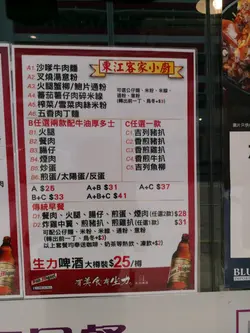 東江客家小廚
A1 沙嗲牛肉麵
A2 叉燒湯意粉
A3 火腿蟹柳/鮑片通粉
A4 蕃茄薯仔肉碎米線
A5 榨菜/雪菜肉絲米粉
A6 五香肉丁麵
可配公仔麵、米粉、米線、
通粉、意粉
(轉出前一丁、烏冬+$3)
B任選兩款配牛油厚多士
B1 火腿
B2 餐肉
B3 腸仔
B4 煙肉
B5 炒蛋
B6 煎蛋/太陽蛋/反蛋
C任選一款
C1 吉列豬扒
C2 吉列雞扒
C3 香煎豬扒
C4 香煎雞扒
C5 吉列魚柳
A $25
A+B $31
A+C $37
B+C $33
A+B+C $41
傳統早餐
D1 餐肉、火腿、腸仔、煎蛋、煙肉(任選2款) $28
D2 炸雞中翼、煎豬扒、煎雞扒(任選1款) $31
可配公仔麵、米粉、米線、通粉、意粉
(轉出前一丁、烏冬+$3)
以上套餐均奉送咖啡、奶茶等熱飲、凍飲+$2)
生力啤酒 大樽裝$25/樽
BLU